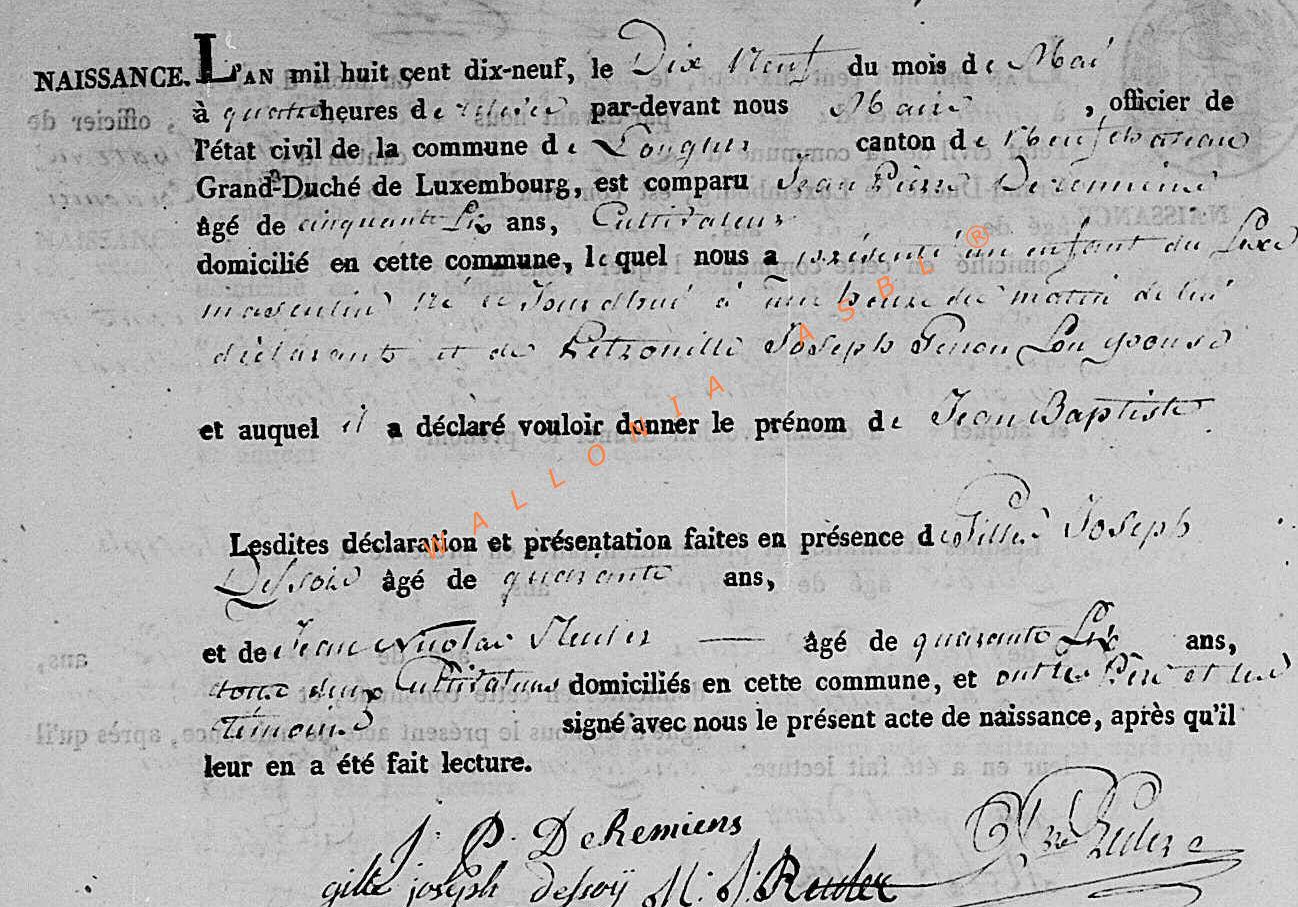 NAISSANCE. L'AN mil huit cent dix-neuf, le Dix Neuf du mois de Mai
à quatre heures de par-devant nous Maire , officier de
l'état civil de la commune de Longlier canton de Neufchateau
Grand-Duché de Luxembourg, est comparu Jean Pierre Deremiens
âgé de cinquante Six ans, Cultivateur
domicilié en cette commune, lequel nous a présenté un enfant du Sexe
masculin né ce Jourdhui à une heure du matin de lui
déclarant et de Petronille Joseph Pinon Son epouse
et auquel il a déclaré vouloir donner le prénom de Jean Baptiste
Lesdites déclaration et présentation faites en présence de Gille Joseph
Dessoie âgé de quarante ans,
et de Jean Nicolas Reuter — âgé de quarante Six ans,
tous deux Cultivateurs domiciliés en cette commune, et ont les Père et les
témoins signé avec nous le présent acte de naissance, après qu'il
leur en a été fait lecture.
J. P. DeRemiens
gille joseph dessoÿ N. J. Reuter
WALLONIA ASBL ®